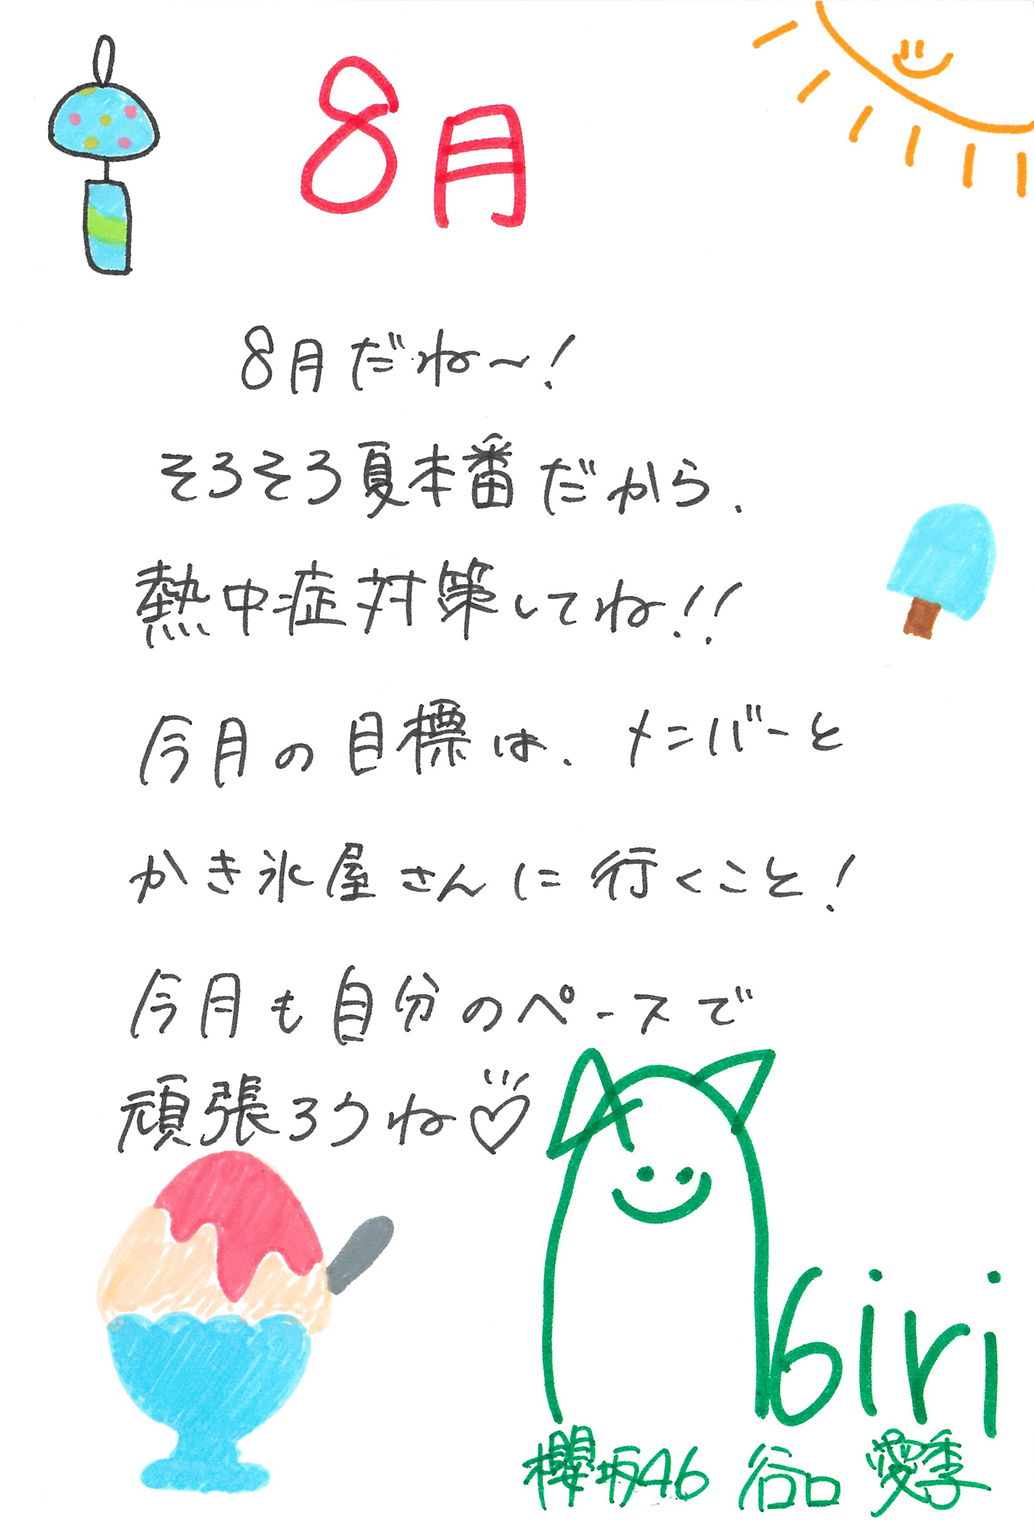 8月
8月だね〜!
そろそろ夏本番だから、
熱中症対策してね!!
今月の目標は、メンバーと
かき氷屋さんに行くこと!
今月も自分のペースで
頑張ろうね♡
biri
櫻坂46 谷口 愛季